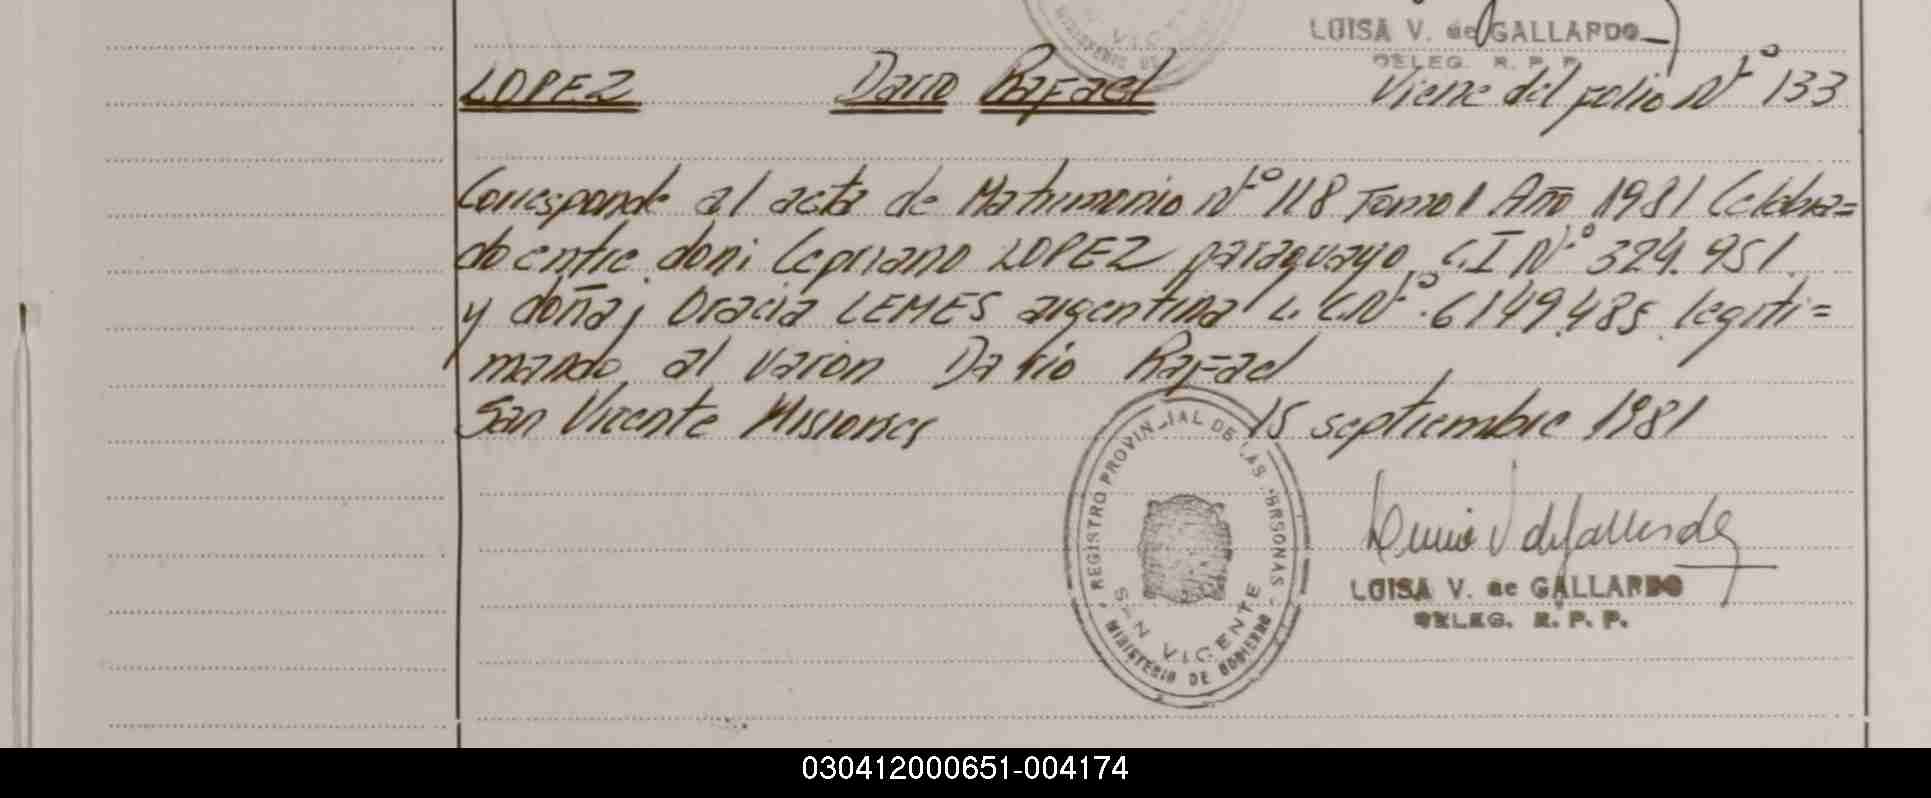 LUISA V. de GALLARDO
DELEG. R. P. P.
LOPEZ Dario Rafael Viene del folio Nº 133
Corresponde al acta de Matrimonio Nº 118 Tomo I Año 1981 Celebra=
do entre don; Cepriano LOPEZ paraguayo C.I Nº 324.951.
y doña; Oracia LEMES argentina L.C.Nº.6149.485. legiti=
mando al varon Dario Rafael
San Vicente Misiones 15 septiembre 1981
REGISTRO PROVINCIAL DE LAS PERSONAS
SAN VICENTE
MINISTERIO DE GOBIERNO
LUISA V. de GALLARDO
DELEG. R. P. P.
030412000651-004174